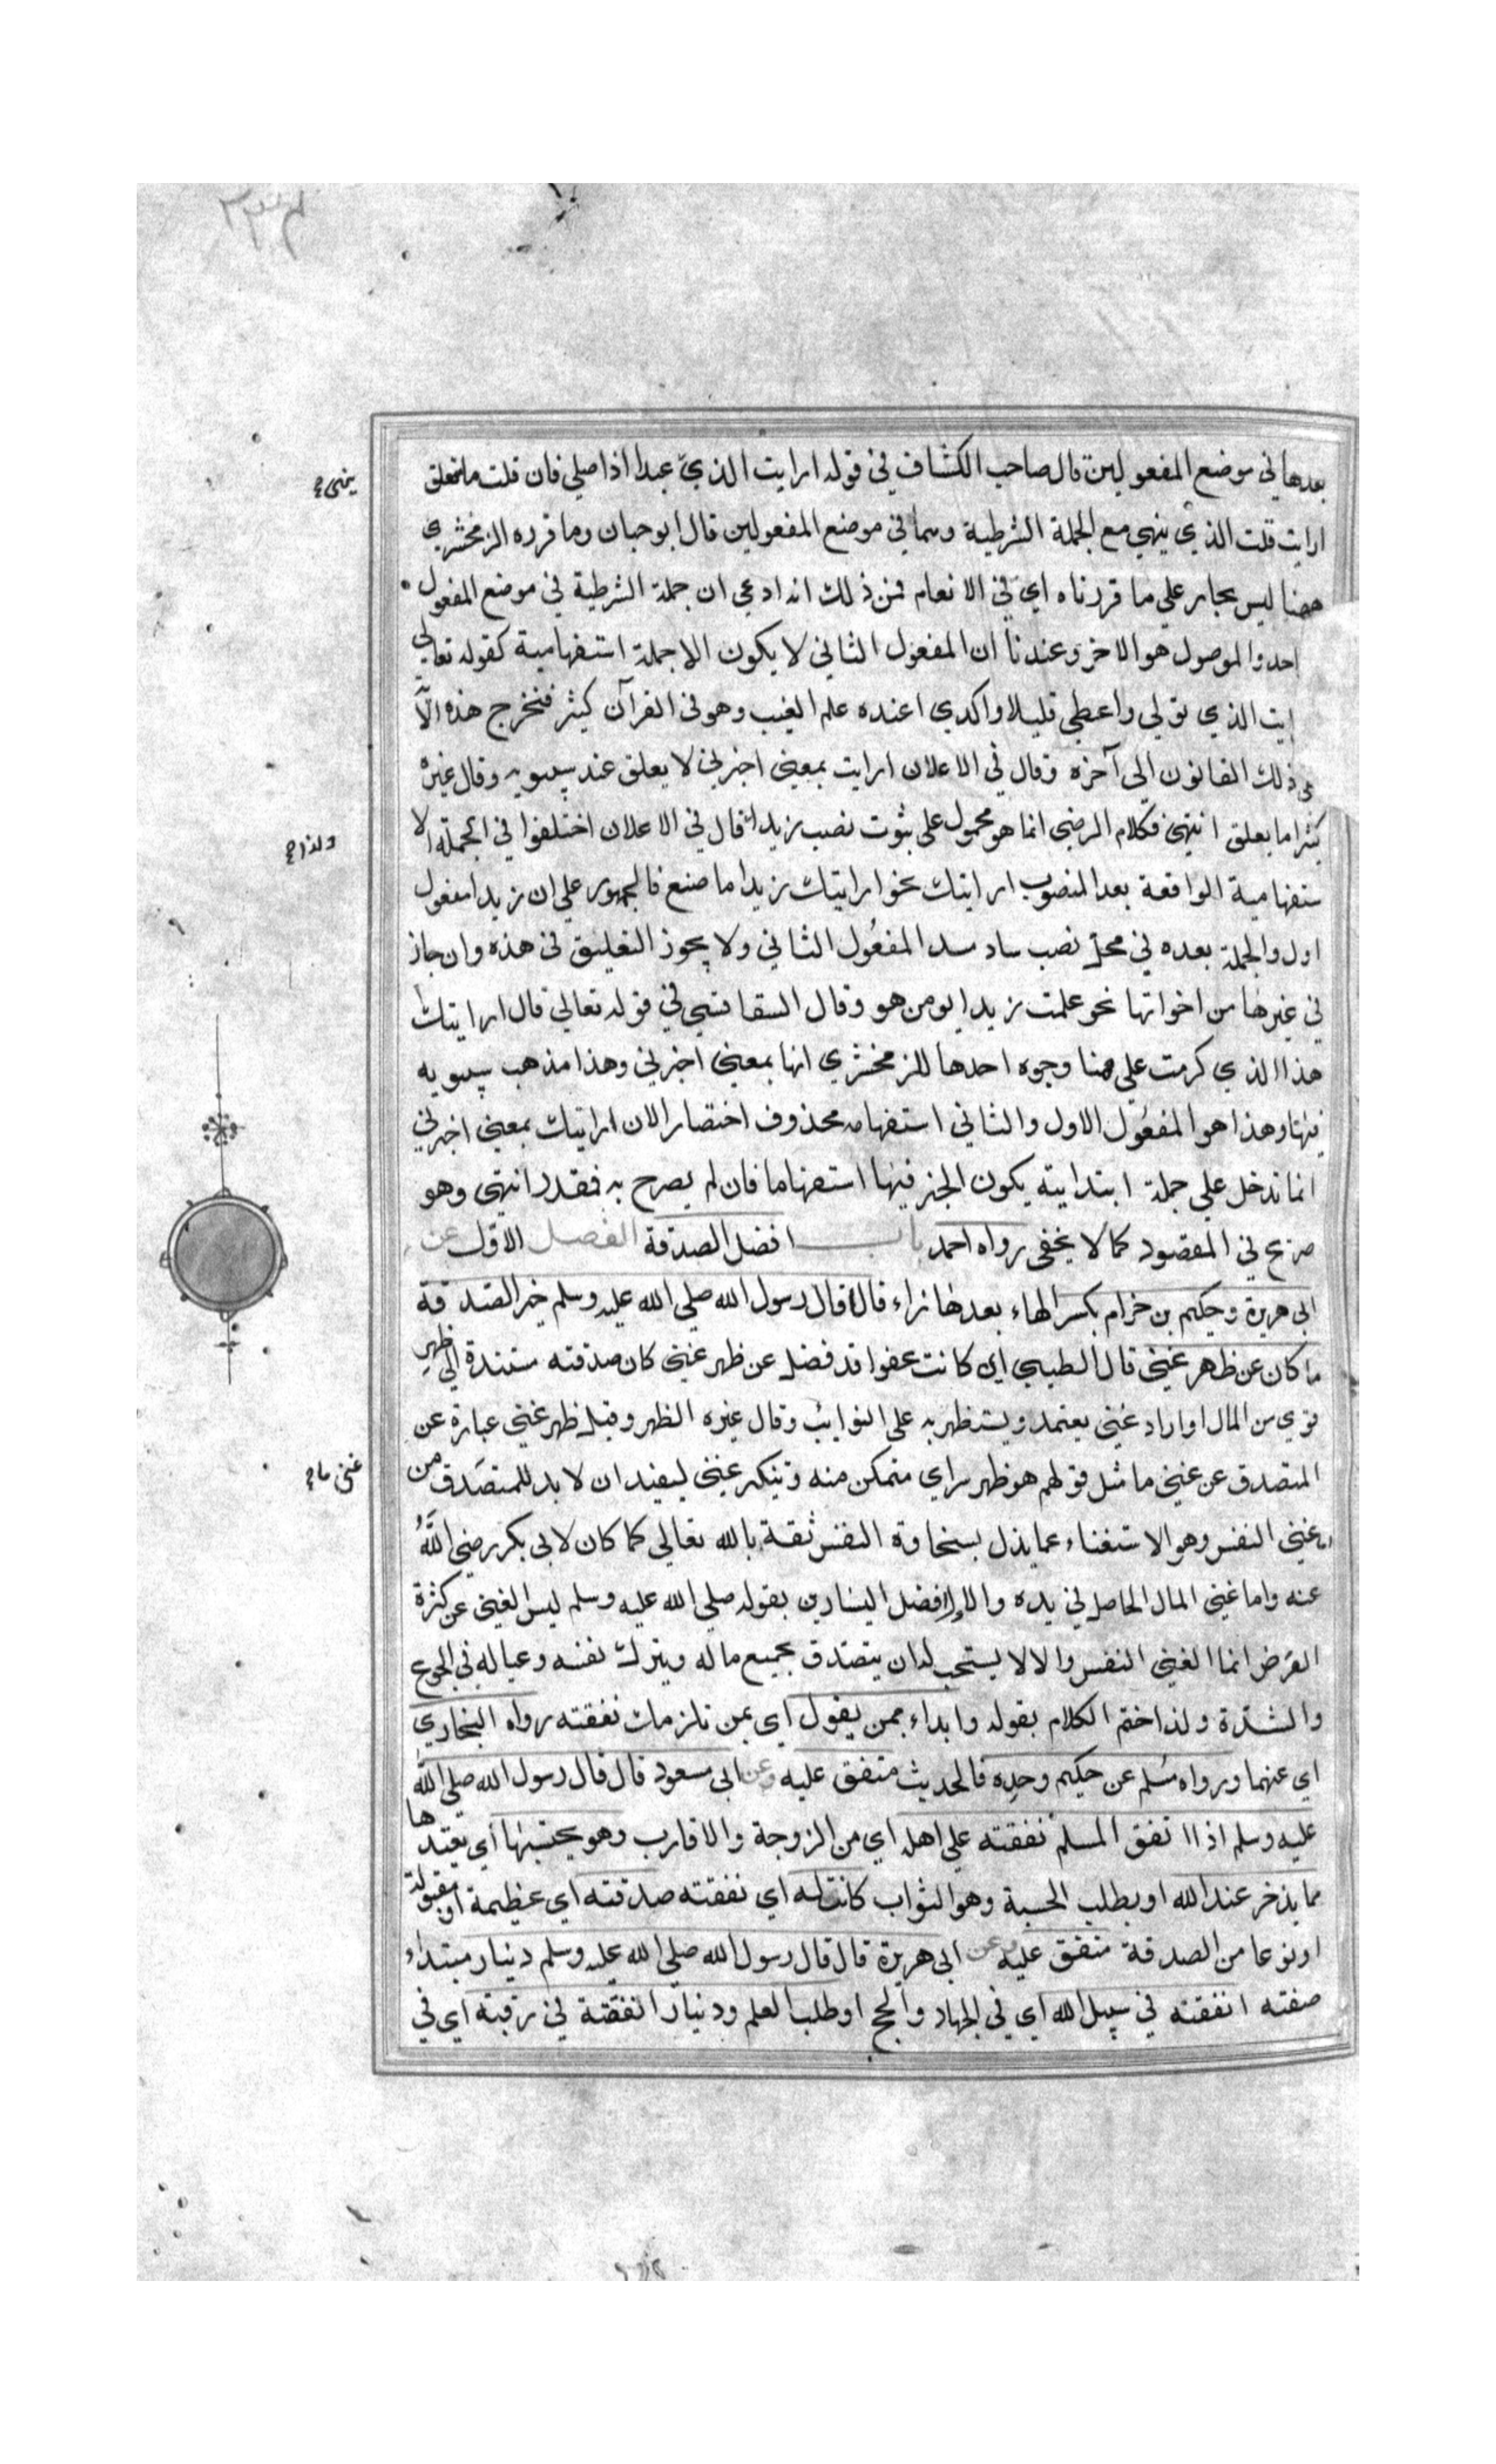 بعدها في موضع المفعولين قال صاحب الكشاف في قوله ارايت الذي عبدا اذا صلي فان قلت ما متعلق
ينهي صح
ارايت قلت الذي ينهي مع الجملة الشرطية وهما في موضع المفعولين قال ابو حيان وما قرره الزمخشري
هنا ليس بجار علي ما قررناه اي في الانعام فمن ذلك انه ادعي ان جملة الشرطية في موضع المفعول
احد والموصول هو الاخر وعندنا ان المفعول الثاني لا يكون الا جملة استفهامية كقوله تعالي
ايت الذي تولي واعطي قليلا واكدي اعنده علم الغيب وهو في القرآن كثير فتخرج هذه الآ
ذلك القانون الي آخره وقال في الاعلان ارايت بمعني اخبرني لا يعلق عند سيبويه وقال غيره
كثيرا ما يعلق انتهي فكلام الرضي انما هو محمول علي ثبوت نصب زيدا قال في الاعلان اختلفوا في الجملة الا
ولذا صح
ستفهامية الواقعة بعد المنصوب ارايتك نحو ارايتك زيدا ما صنع فالجمهور علي ان زيدا مفعول
اول والجملة بعده في محل نصب ساد سد المفعول الثاني ولا يجوز التعليق في هذه وان جاز
في غيرها من اخواتها نحو علمت زيدا ابو من هو وقال السفاقسي في قوله تعالي قال ارايتك
هذا الذي كرمت علي هنا وجوه احدها للزمخشري انها بمعني اخبرني وهذا مذهب سيبويه
فيها وهذا هو المفعول الاول والثاني استفهام محذوف اختصارا لان ارايتك بمعني اخبرني
انما تدخل علي جملة ابتدايية يكون الخبر فيها استفهاما فان لم يصرح به فمقدر انتهي وهو
صريح في المقصود كما لا يخفي رواه احمد باب افضل الصدقة الفصل الاول عن
ابي هريرة وحكيم بن حزام بكسر الهاء بعدها زاء قالا قال رسول الله صلي الله عليه وسلم خير الصدقة
ما كان عن ظهر غني قال الطيبي اي كانت عفوا قد فضل عن ظهر غني كان صدقته مستندة الي ظهر
قوي من المال او اراد غني يعتمد ويستظهر به علي النوايب وقال غيره الظهر وقيل ظهر غني عبارة عن
المتصدق عن غني ما مثل قولهم هو ظهر سراي متمكن منه وتنكير غني ليفيد ان لا بد للمتصدق من
غني ما صح
غني النفس وهو الاستغناء عما بذل بسخاوة النفس ثقة بالله تعالي كما كان لابي بكر رضي الله
عنه واما غني المال الحاصل في يده والاول افضل اليسارين بقوله صلي الله عليه وسلم ليس الغني عن كثرة
العرض انما الغني النفس والا لا يستحب له ان يتصدق بجميع ماله ويترك نفسه وعياله في الجوع
والشدة ولذا ختم الكلام بقوله وابداء بمن يعول اي بمن تلزمك نفقته رواه البخاري
اي عنهما ورواه مسلم عن حكيم وحده فالحديث متفق عليه وعن ابي مسعود قال قال رسول الله صلي الله
عليه وسلم اذا انفق المسلم نفقته علي اهله اي من الزوجة والاقارب وهو يحتسبها اي يعتدها
مما يذخر عند الله او يطلب الحسبة وهو الثواب كانت له اي نفقته صدقته اي عظيمة او مقبولة
او نوعا من الصدقة متفق عليه وعن ابي هريرة قال قال رسول الله صلي الله عليه وسلم دينار مبتداء
صفته انفقته في سبيل الله اي في الجهاد والحج او طلب العلم ودينار انفقته في رقبة اي في